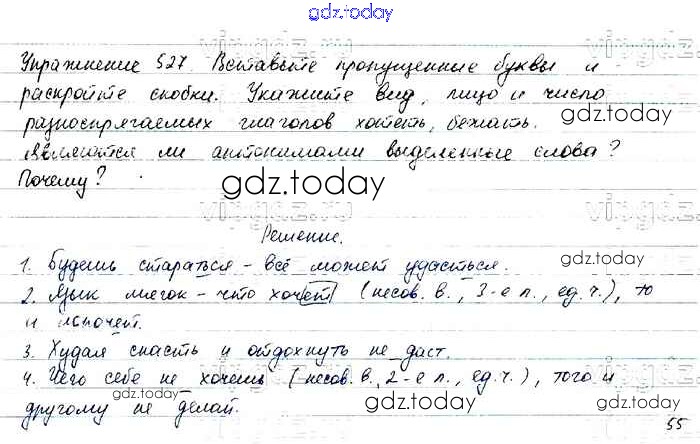 gdz.today
Упражнение 527. Вставьте пропущенные буквы и
раскройте скобки. Укажите вид, лицо и число
разноспрягаемых глаголов хотеть, бежать.
gdz.today
Являются ли антонимами выделенные слова?
Почему?
gdz.today
Решение.
gdz.today
1. Будешь стараться – всё может удасться.
2. Язык мягок – что хочет (несов. в., 3-е л., ед. ч.), то
и лопочет.
gdz.today
3. Худая снасть и отдохнуть не даст.
4. Чего себе не хочешь (несов. в., 2-е л., ед. ч.), того и
другому не делай.
gdz.today
gdz.today
55